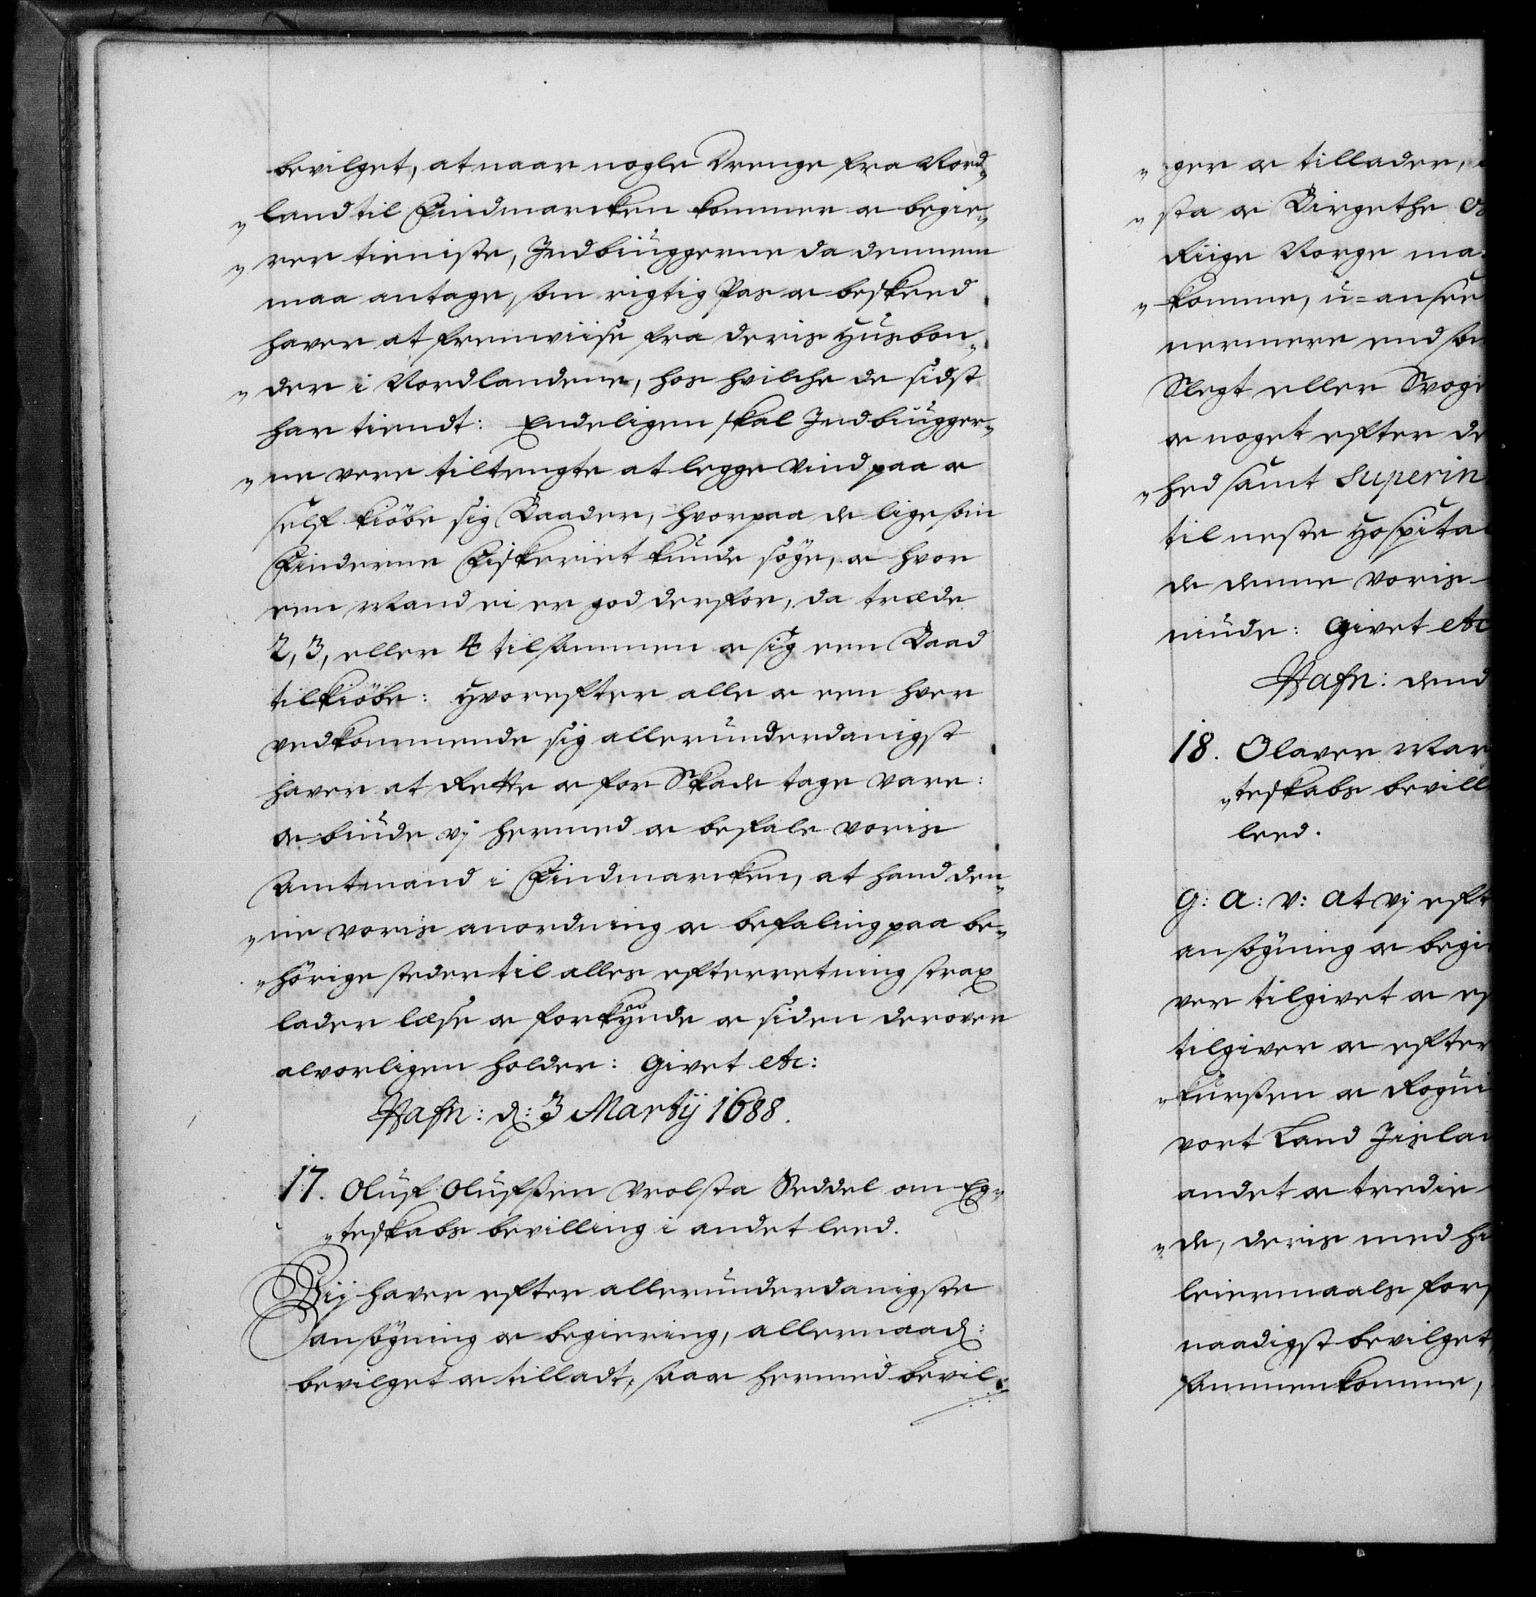 bevilget, at naar nogle Drenge fra Nord„
„land til Findmarcken kommer oc begie„
„rer tieniste, Indbiüggerne da dennem
maa antage, som rigtig Pas oc beskeed
haver at fremviise fra deris Hüsbon„
„der i Nordlandene, hos hvilche de sidst
har tiendt: Endeligen skal Indbiügger„
„ne vere tiltengte at legge Vind paa oc
self kiöbe sig Baader, hvorpaa de ligesom
Finderne Fiskeriet kunde söge, oc hvor
een Mand ei er god derfor, da træde
2, 3, eller 4 tilsammen oc sig een Baad
tilkiöbe: Hvorefter alle oc een hver
vedkommende sig alleründerdanigst
haver at rette oc for Skade tage vare:
oc biüde vj hermed oc befale voris
Amtmand i Findmarcken, at hand den„
„ne voris anordning oc befaling paa be„
„hörige steder til alles efterretning strax
lader læse oc forkynde oc siden derover
alvorligen holder: Givet etc:
Hafn: d: 3 Martij 1688.
17. Olüf Olüfsen Wolsta Seddel om Eg„
„teskabs bevilling i andet leed.
Vij haver efter alleründerdanigste
ansögning oc begiering, allernaad:
bevilget oc tilladt, saa oc hermed bevil„
„ger oc tillader,
„sta oc Birgethe
Riige Norge ma
„komme, ü=anseet
nermere end
Slegt eller Svoge
oc noget efter de
„hed samt Superin
til neste Hospital
de denne voris
niüde: Givet etc
Hafn: dend
18. Olaver Mar
„teskabs bevill
leed.
G: A: V: At vj eft
ansögning oc begi
ver tilgivet oc ef
tilgiver oc efter
„kursen oc Rogni
vort Land Jisla
andet oc tredie
„de, deris med h
leiermaals for
naadigst bevilget
sammenkomme,